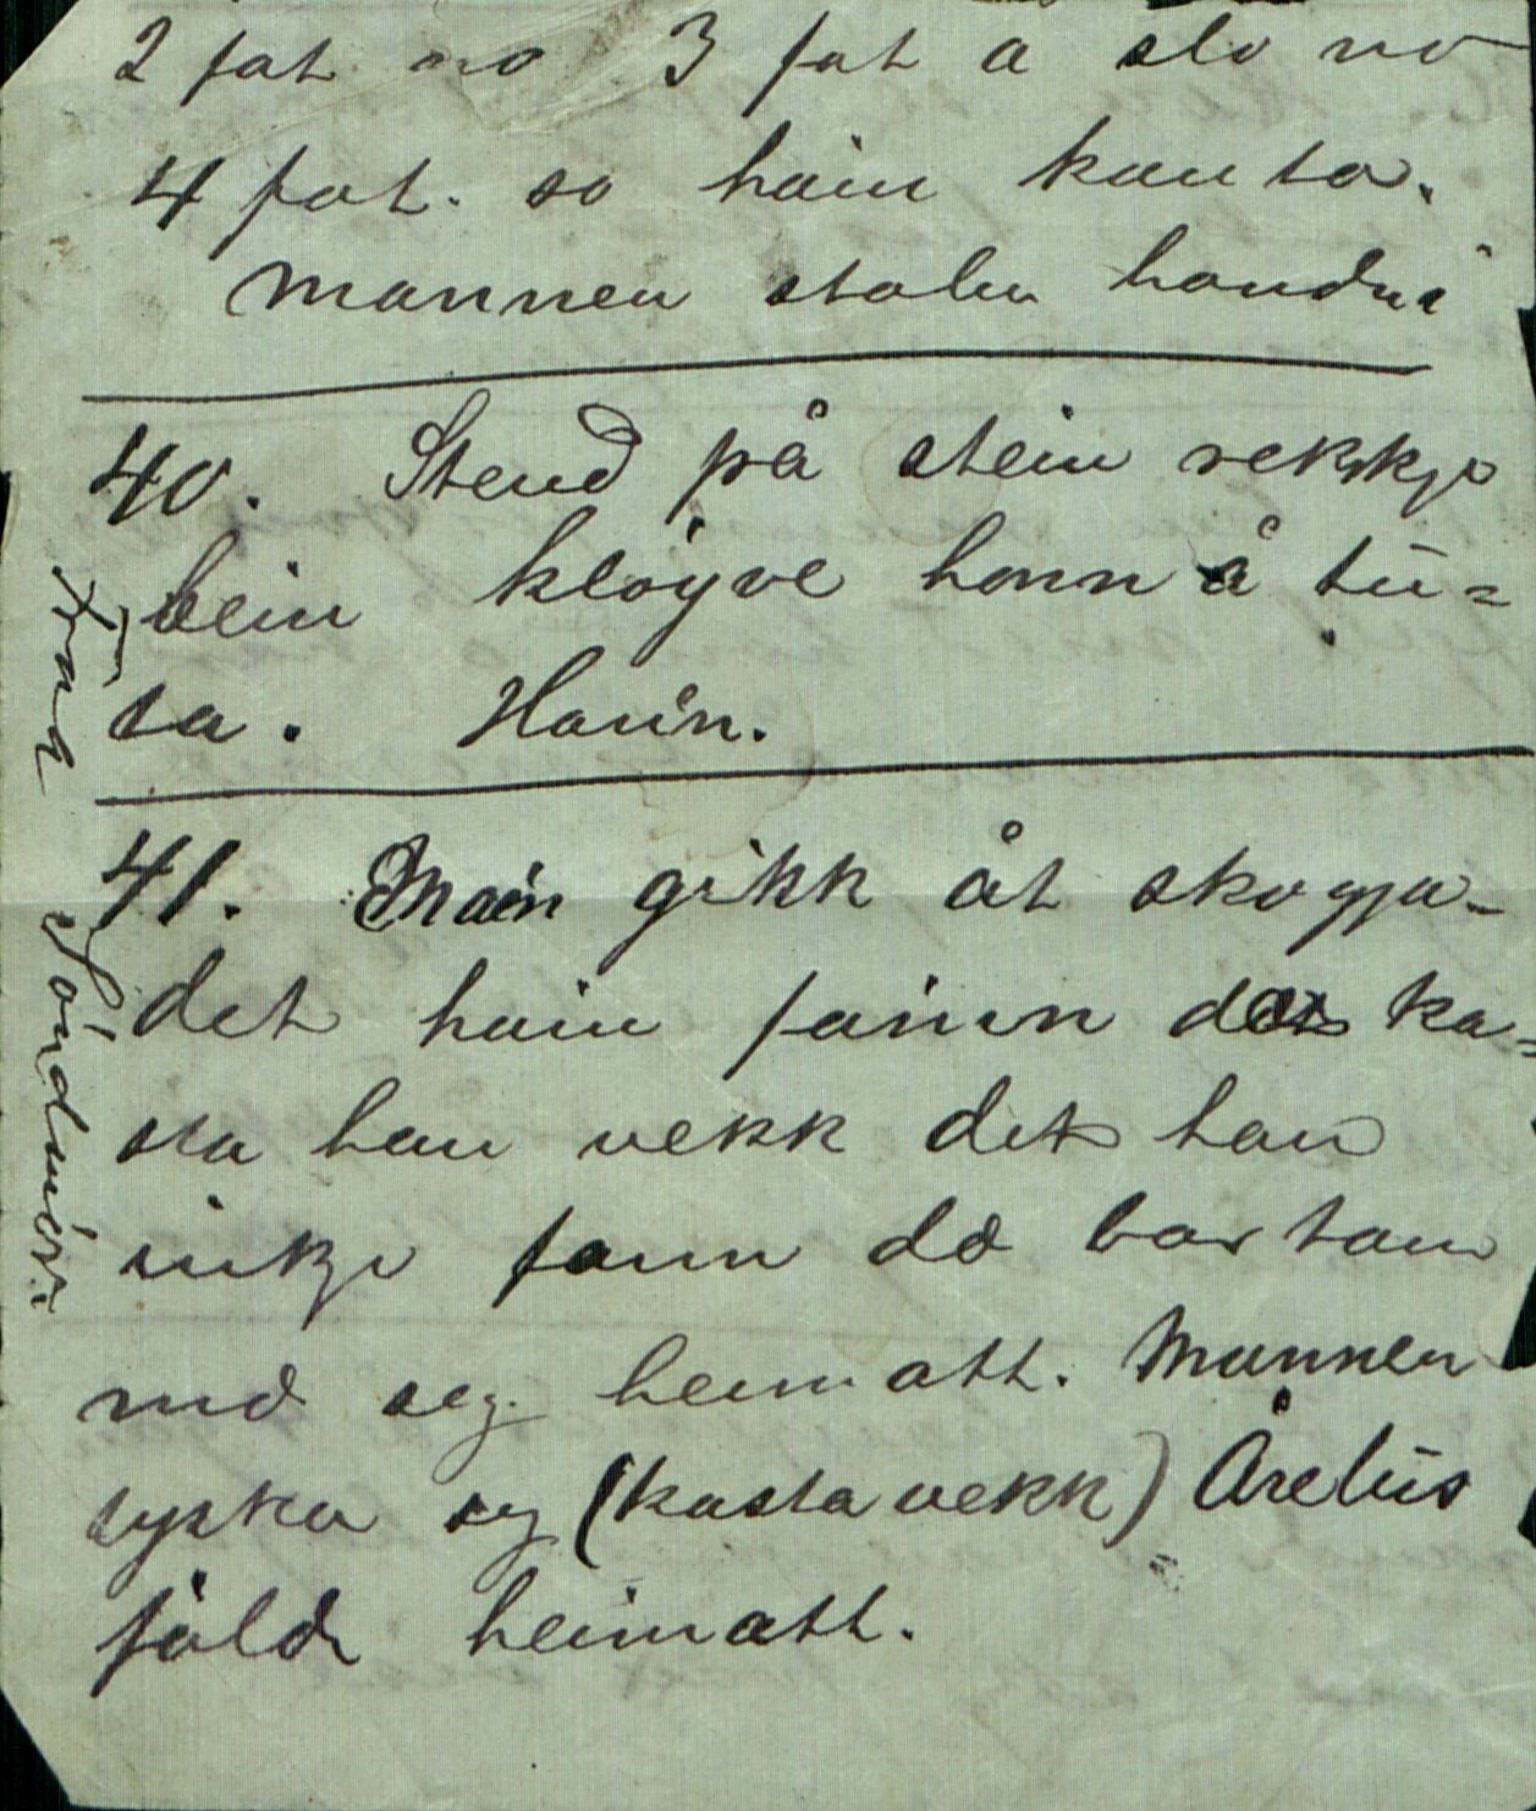 2 fat no 3 fat a slo no
4 fat. so hain kan ta.
Mannen stolen
40. Stend på stein rekkje
bein kløyve honn å tu=
ta. Hanin.
41. Main gikk åt skogja-
det hain fainn det ka=
sta han vekk det han
inkje fann do bar han
md seg heimatt. Mannen
lyska seg (kasta vekk) Årelus
földe heimatt.
Fraa Söndmör: